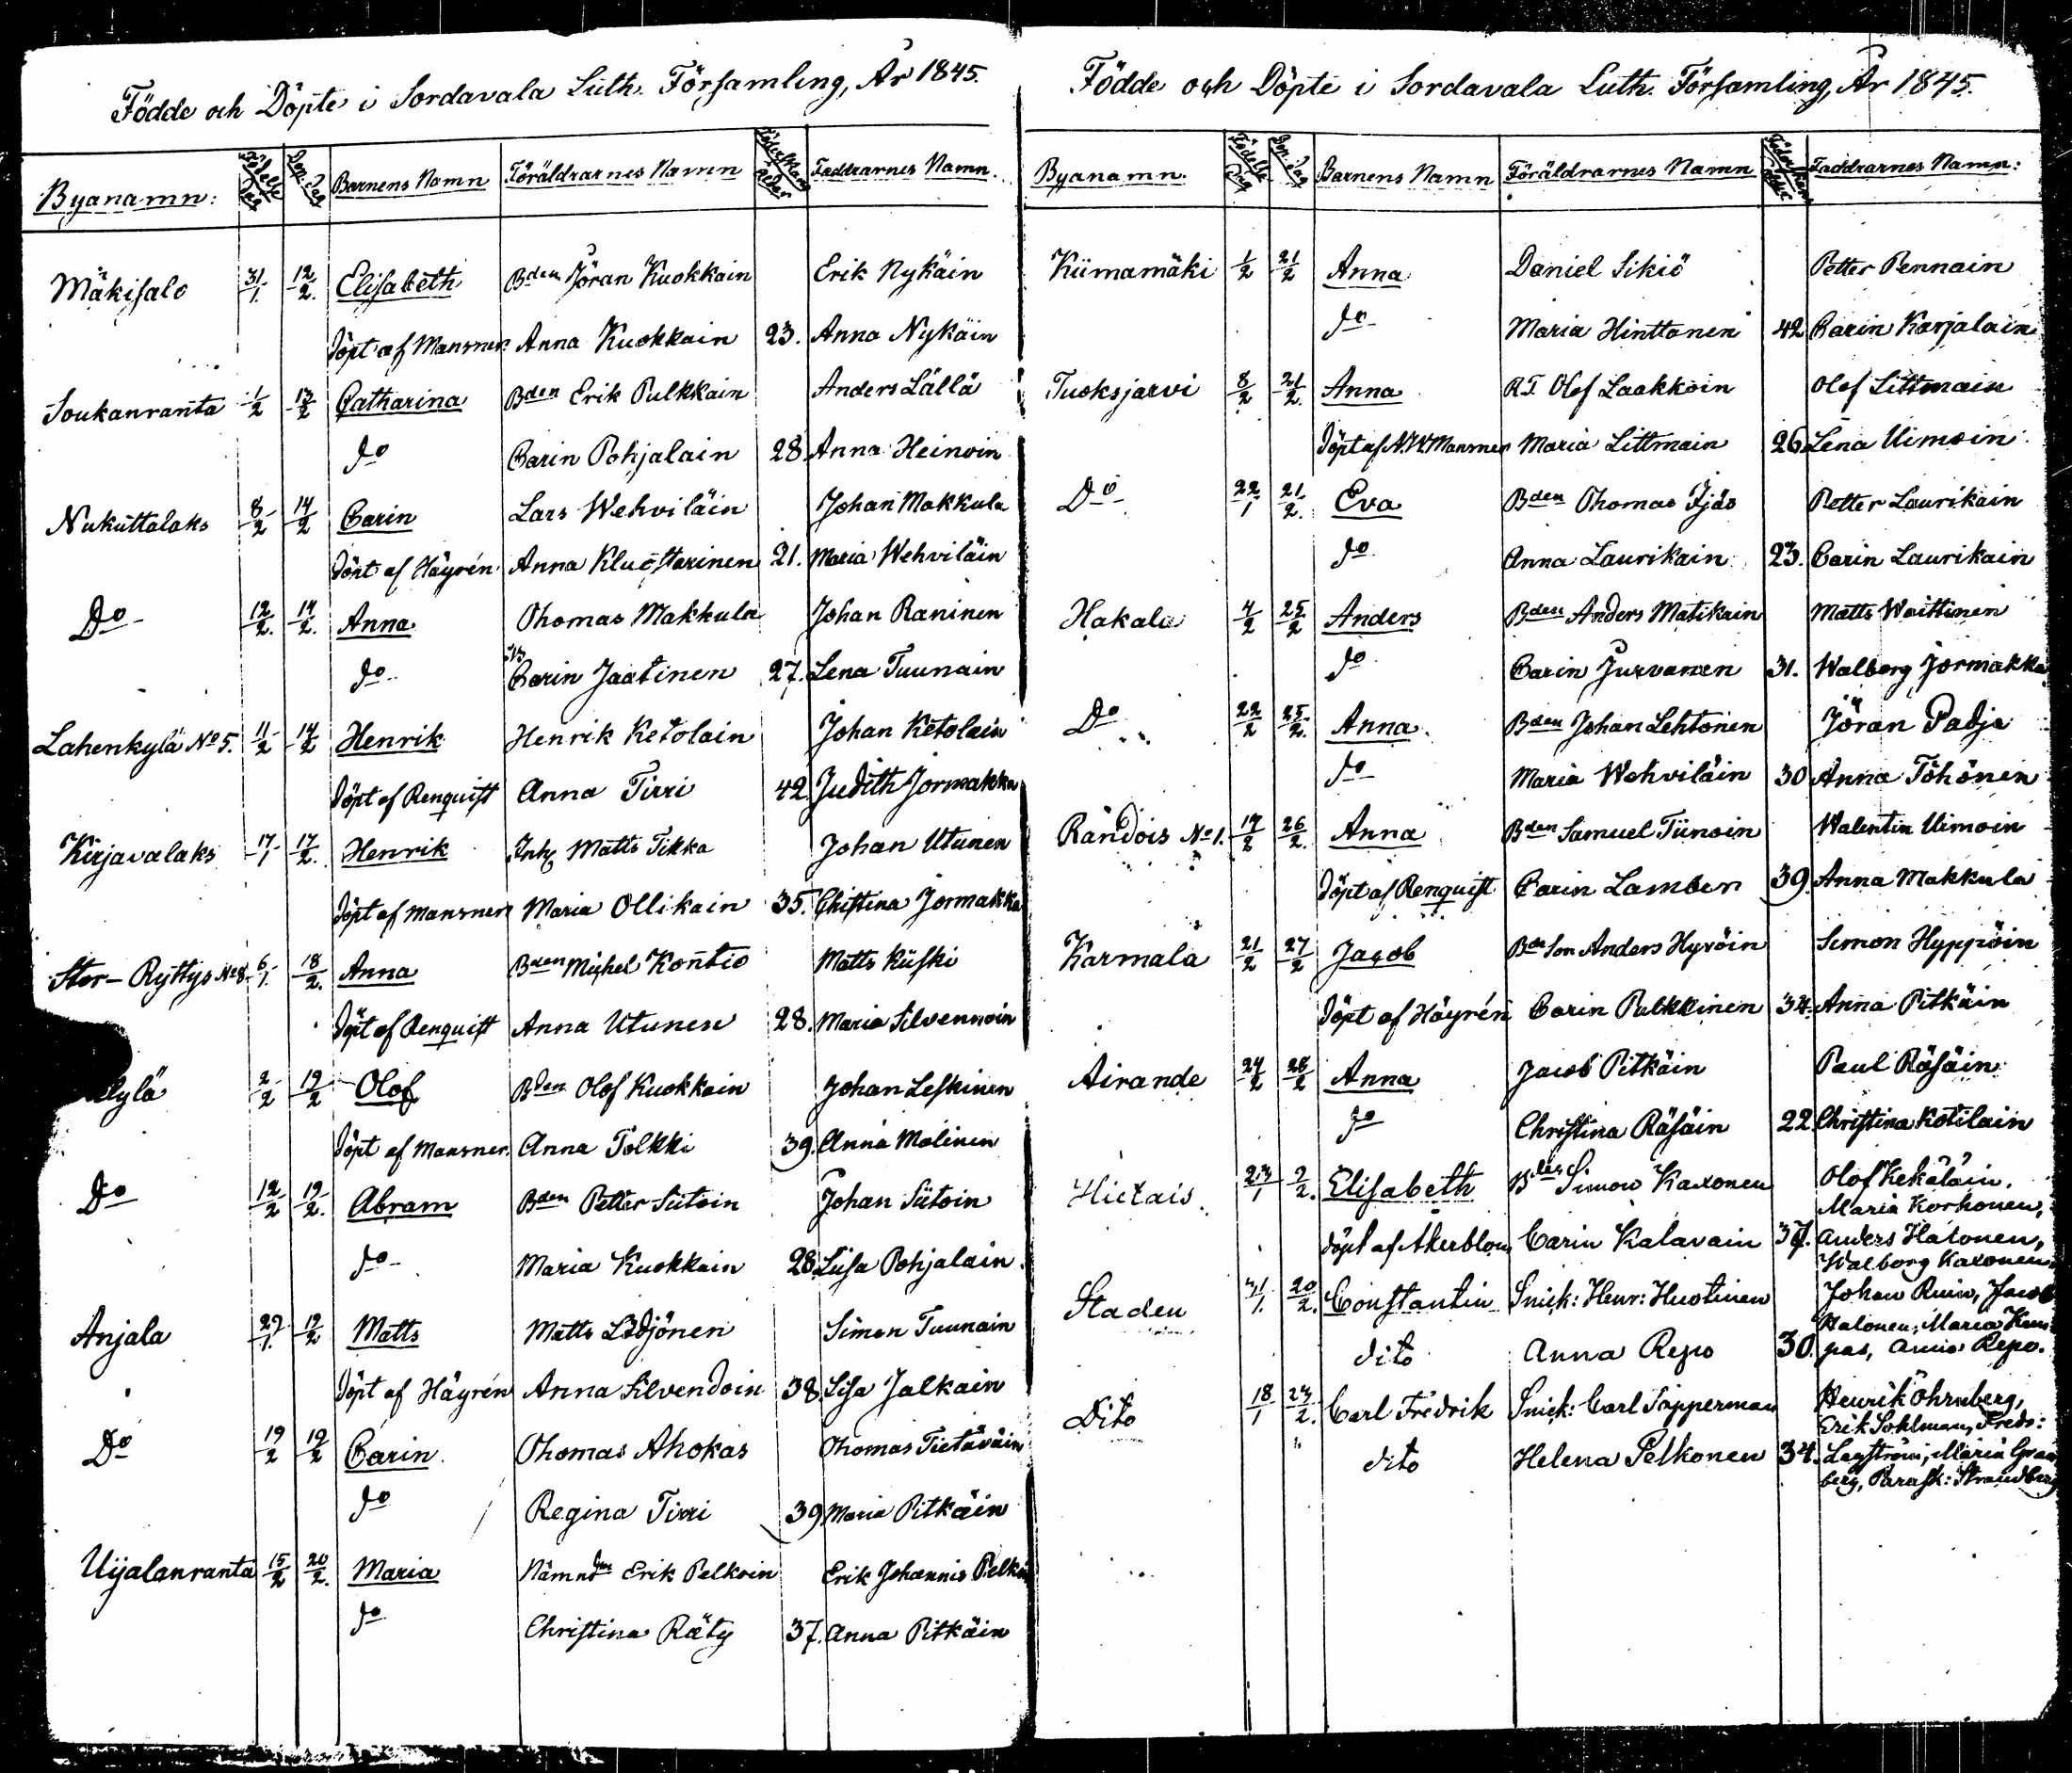 Födde och Döpte i Sordavala Luth. Församling, År 1845.
Byanamn: Födelse Dag Dop-Dag Barnens Namn Föräldrarnes Namn Föderskans ålder Faddrarnes Namn.
Mäkisalo 31/1 12/2. Elisabeth Bden Jöran Kuokkain Erik Nykäin
Döpt af Mansner. Anna Kuokkain 23. Anna Nykäin
Soukanranta 1/2 13/2 Catharina Bden Erik Pulkkain Anders Lällä
do Carin Pohjalain 28. Anna Heinoin
Nukuttalaks 8/2 14/2 Carin Lars Wehviläin Johan Makkula
Döpt af Häyrén Anna Kluostarinen 21. Maria Wehviläin
Do 12/2. 14/2. Anna Thomas Makkula Johan Raninen
do Carin Jaatinen 27. Lena Tuunain
Lahenkylä No 5. 11/2 14/2 Henrik Henrik Ketolain Johan Ketolain
Döpt af Renquist Anna Tirri 42. Judith Jormakka
Kirjavalaks 17/1 17/2. Henrik Inh. Matts Tikka Johan Utunen
Döpt af Mansner Maria Ollikain 35. Christina Jormakka
Stor-Ryttys No 8. 6/1. 18/2. Anna Bden Michel Kontio Matts Kiiski
Döpt af Renquist Anna Utunen 28. Maria Silvennoin
kylä 2/2 19/2 Olof Bden Olof Kuokkain Johan Leskinen
Döpt af Mansner. Anna Tolkki 39. Anna Molinen
Do 12/2 19/2. Abram Bden Petter Siitoin Johan Siitoin
do Maria Kuokkain 28. Liisa Pohjalain
Anjala 29/1. 19/2 Matts Matts Lödjönen Simon Tuunain
Döpt af Häyrén Anna Silvendoin 38. Lisa Jalkain
Do 19/2 19/2 Carin Thomas Ahokas Thomas Tietäväin
do Regina Tirri 39 Maria Pitkäin
Uijalanranta 15/2 20/2. Maria Nämndm Erik Pelkoin Erik Johannis Pelkoi
do Christina Räty 37. Anna Pitkäin
Födde och Döpte i Sordavala Luth. Församling, År 1845.
Byanamn. Födelse Dag Dop-Dag Barnens Namn Föräldrarnes Namn Föderskans ålder Faddrarnes Namn:
Kiimamäki 1/2 21/2 Anna Daniel Sikiö Petter Pennain
do Maria Hinttonen 42 Carin Karjalain
Tuoksjarvi 8/2 21/2. Anna R.T. Olof Laakkoin Olof Littmain
Döpt af N.W. Mansner Maria Littmain 26. Lena Uimoin
Do 22/1 21/2. Eva Bden Thomas Ijäs Petter Laurikain
do Anna Laurikain 23. Carin Laurikain
Hakala 4/2 25/2 Anders Bden Anders Matikain Matts Waittinen
do Carin Jurvanen 31. Walborg Jormakka
Do 22/2 25/2. Anna Bden Johan Lehtonen Jöran Padja
do Maria Wehviläin 30 Anna Töhönen
Rändois No 1. 19/2 26/2. Anna Bden Samuel Tiinoin Walentin Uimoin
Döpt af Renquist Carin Lamber 39. Anna Makkula
Karmala 21/2 27/2 Jacob Bde Son Anders Hyröin Simon Hyppöin
Döpt af Häyrén Carin Pulkkinen 34. Anna Pitkäin
Airande 24/2 28/2 Anna Jacob Pitkäin Paul Räsäin
do Christina Räsäin 22. Christina Kotilain
Hietais 23/1 2/2. Elisabeth Bden Simon Kaxonen Olof Kekäläin.
Maria Korhonen,
döpt af Akerblom Carin Kalavain 37. Anders Halonen,
Walborg Kaxonen.
Staden 31/1. 20/2. Constantin Snick: Henr: Huotinen Johan Ruin, Jacob
Halonen, Maria Kum
dito Anna Repo 30. pas, Anna Repo.
Dito 18/1 23/2. Carl Fredrik Snick: Carl Sapperman Henrik Öhrnberg,
Erik Sohlman, Freds:
dito Helena Pelkonen 34. Lagström, Maria Gran
berg, Parask: Strandberg